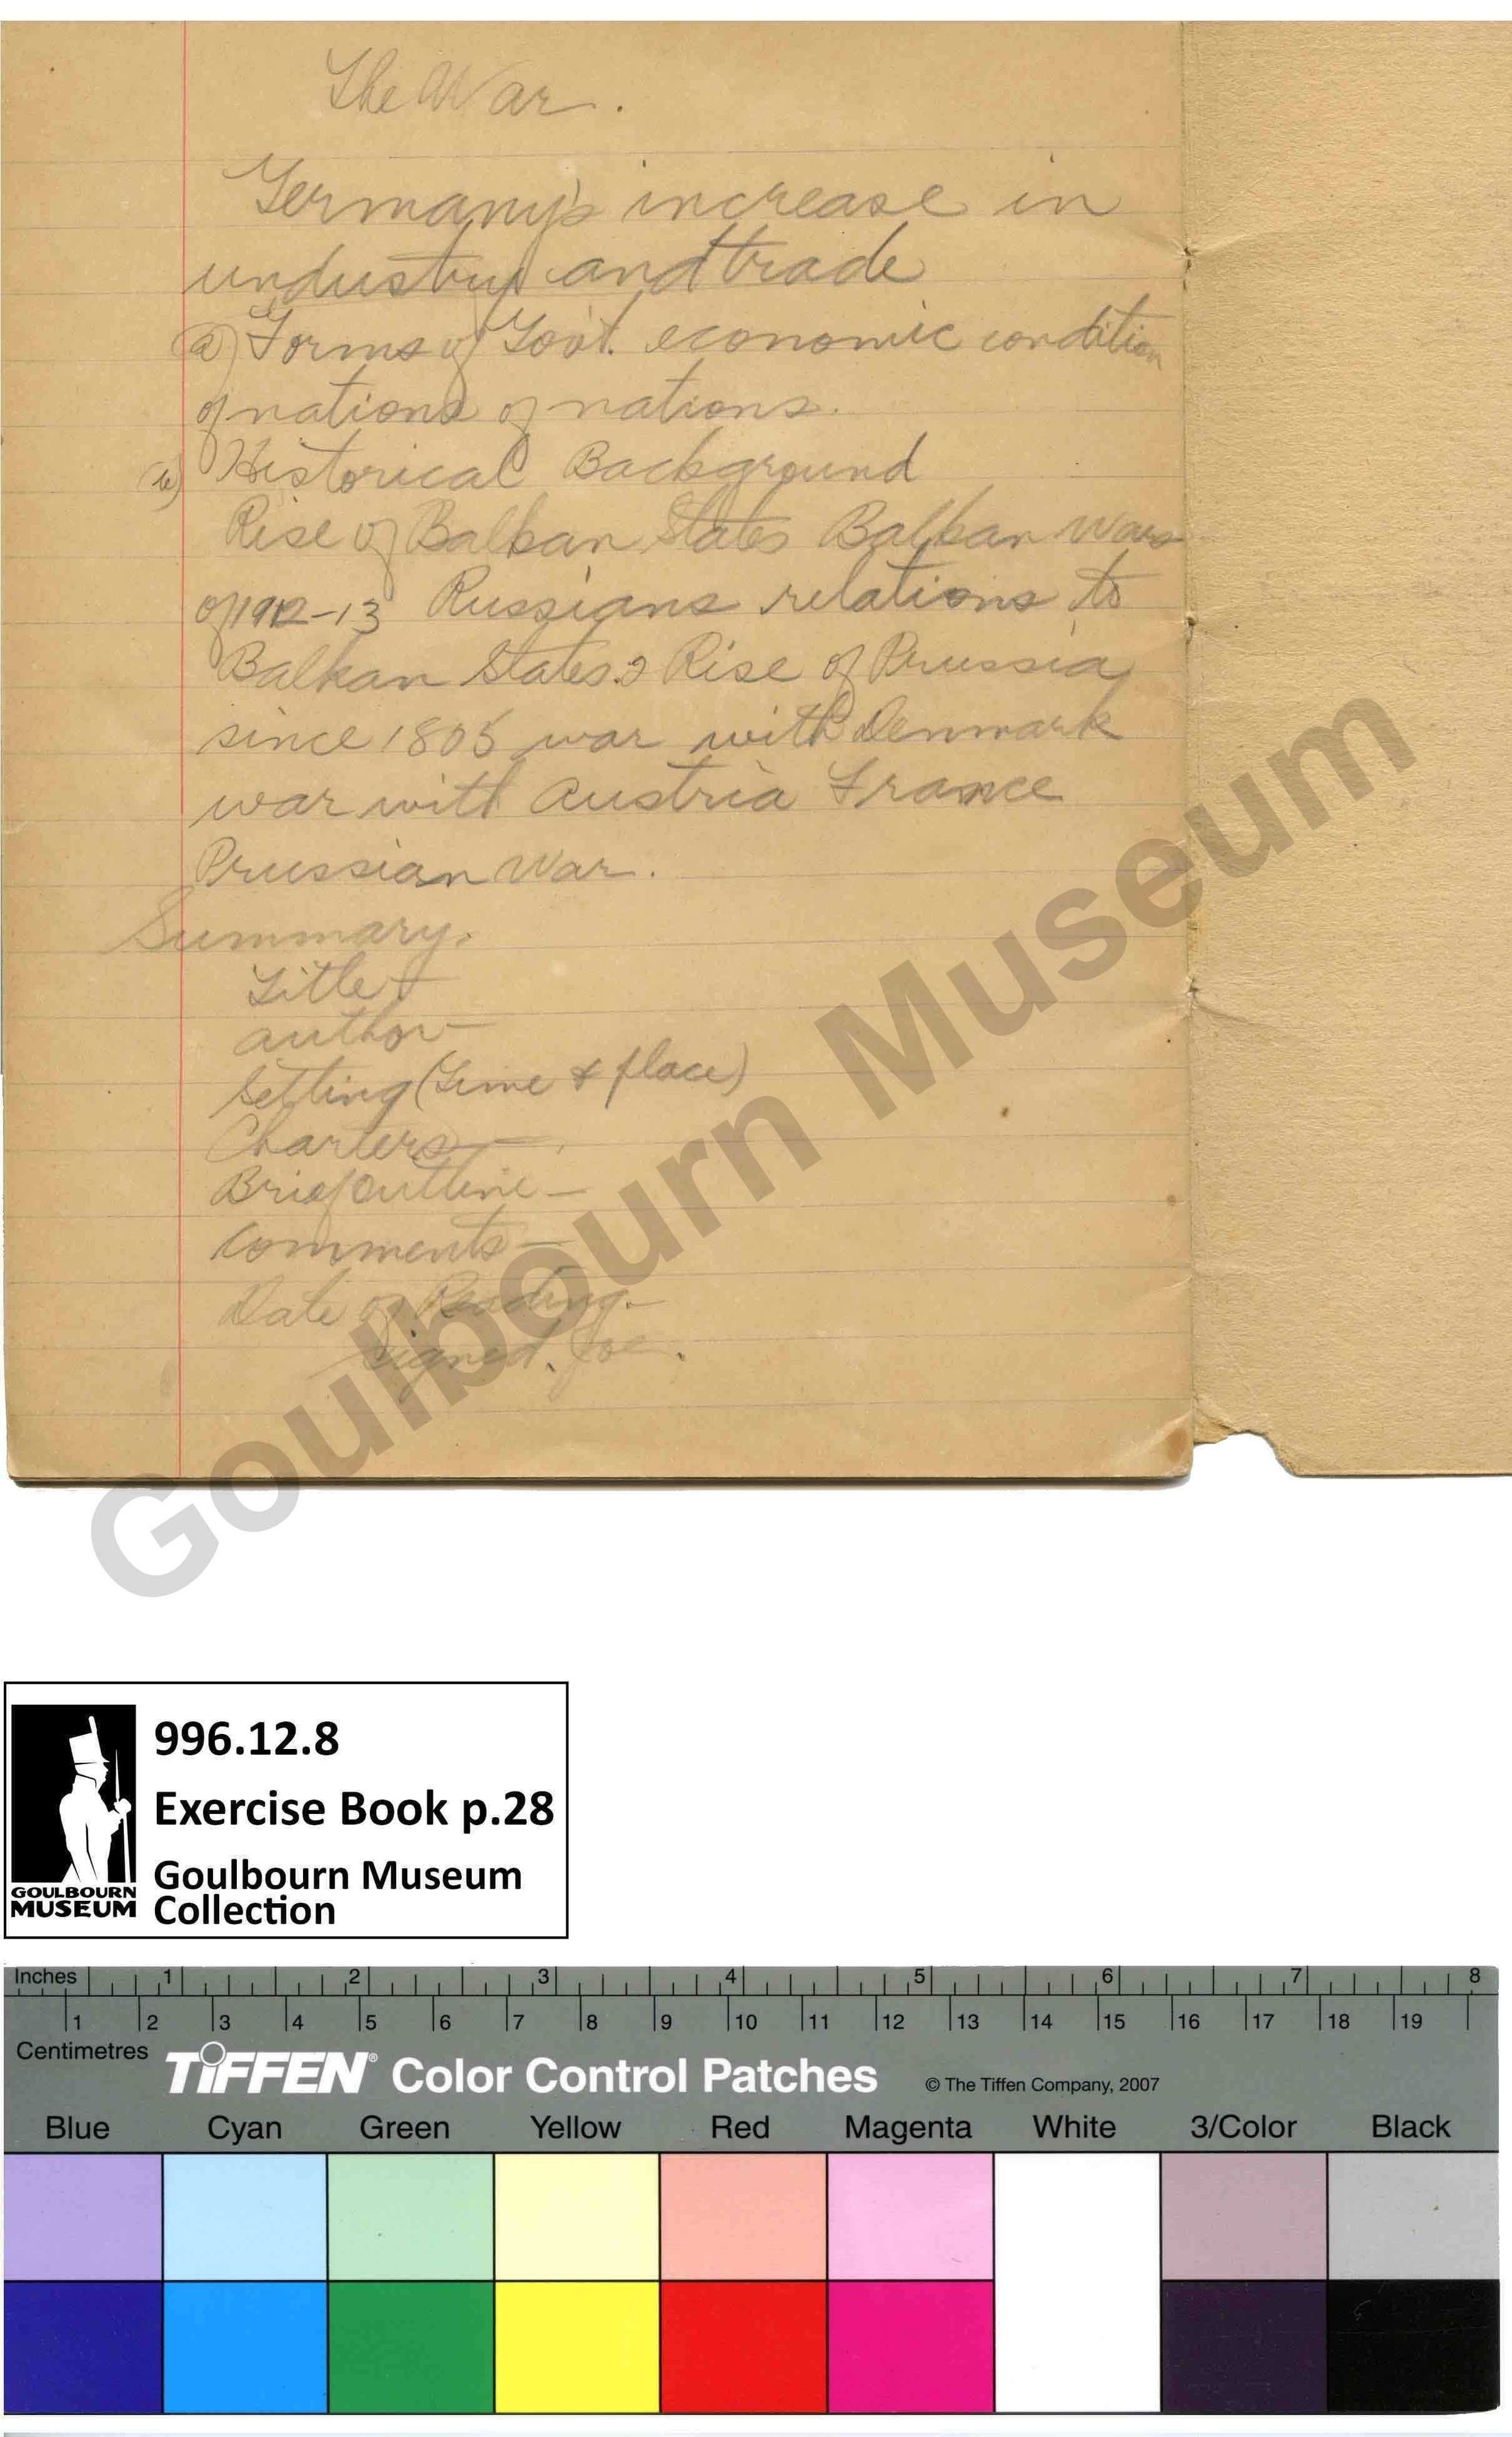 The War.
Germany's increase in
undustry and trade
(a) Forms of Govt. economic condition
of nations of nations.
(b) Historical Background
Rise of Balkan States Balkan Wars
of 1912-13 Russians relations to
Balkan States. Rise of Prussia
since 1805 war with Denmark
war with Austria France
Prussian War.
Summary.
Title -
author -
Setting (Time & place)
Charters -
Brief outline -
Comments -
Date of Reading. -
Signed. Joe.
Goulbourn Museum
996.12.8
Exercise Book p.28
Goulbourn Museum
Collection
GOULBOURN
MUSEUM
Inches 1 2 3 4 5 6 7 8
1 2 3 4 5 6 7 8 9 10 11 12 13 14 15 16 17 18 19
Centimetres
TIFFEN® Color Control Patches © The Tiffen Company, 2007
Blue Cyan Green Yellow Red Magenta White 3/Color Black